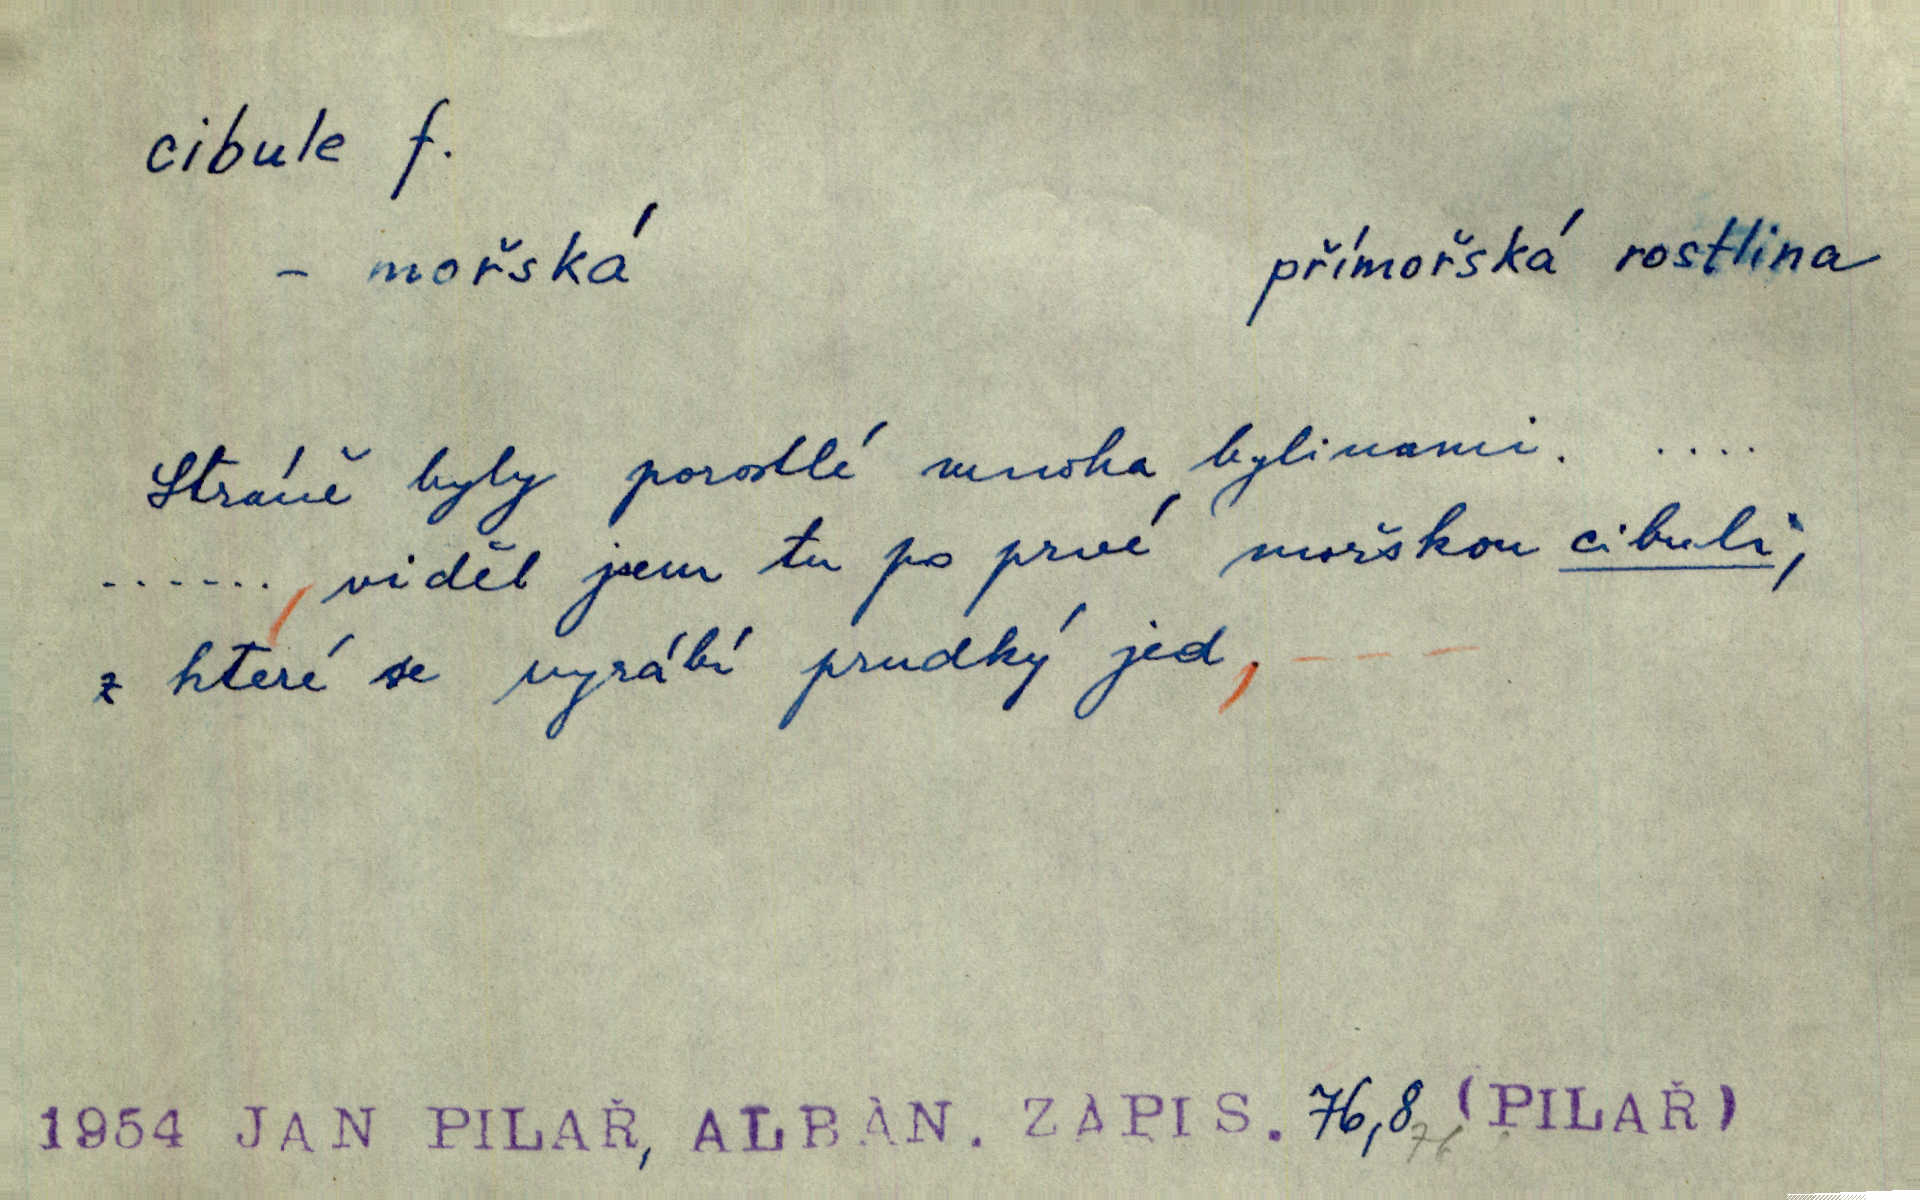 cibule f.
– mořská
přímořská rostlina
Stráně byly porostlé mnoha bylinami. ....
......, viděl jsem tu po prvé mořskou cibuli,
z které se vyrábí prudký jed, – – –
1954 JAN PILAŘ, ALBÁN. ZÁPIS. 76,8 (PILAŘ)
76